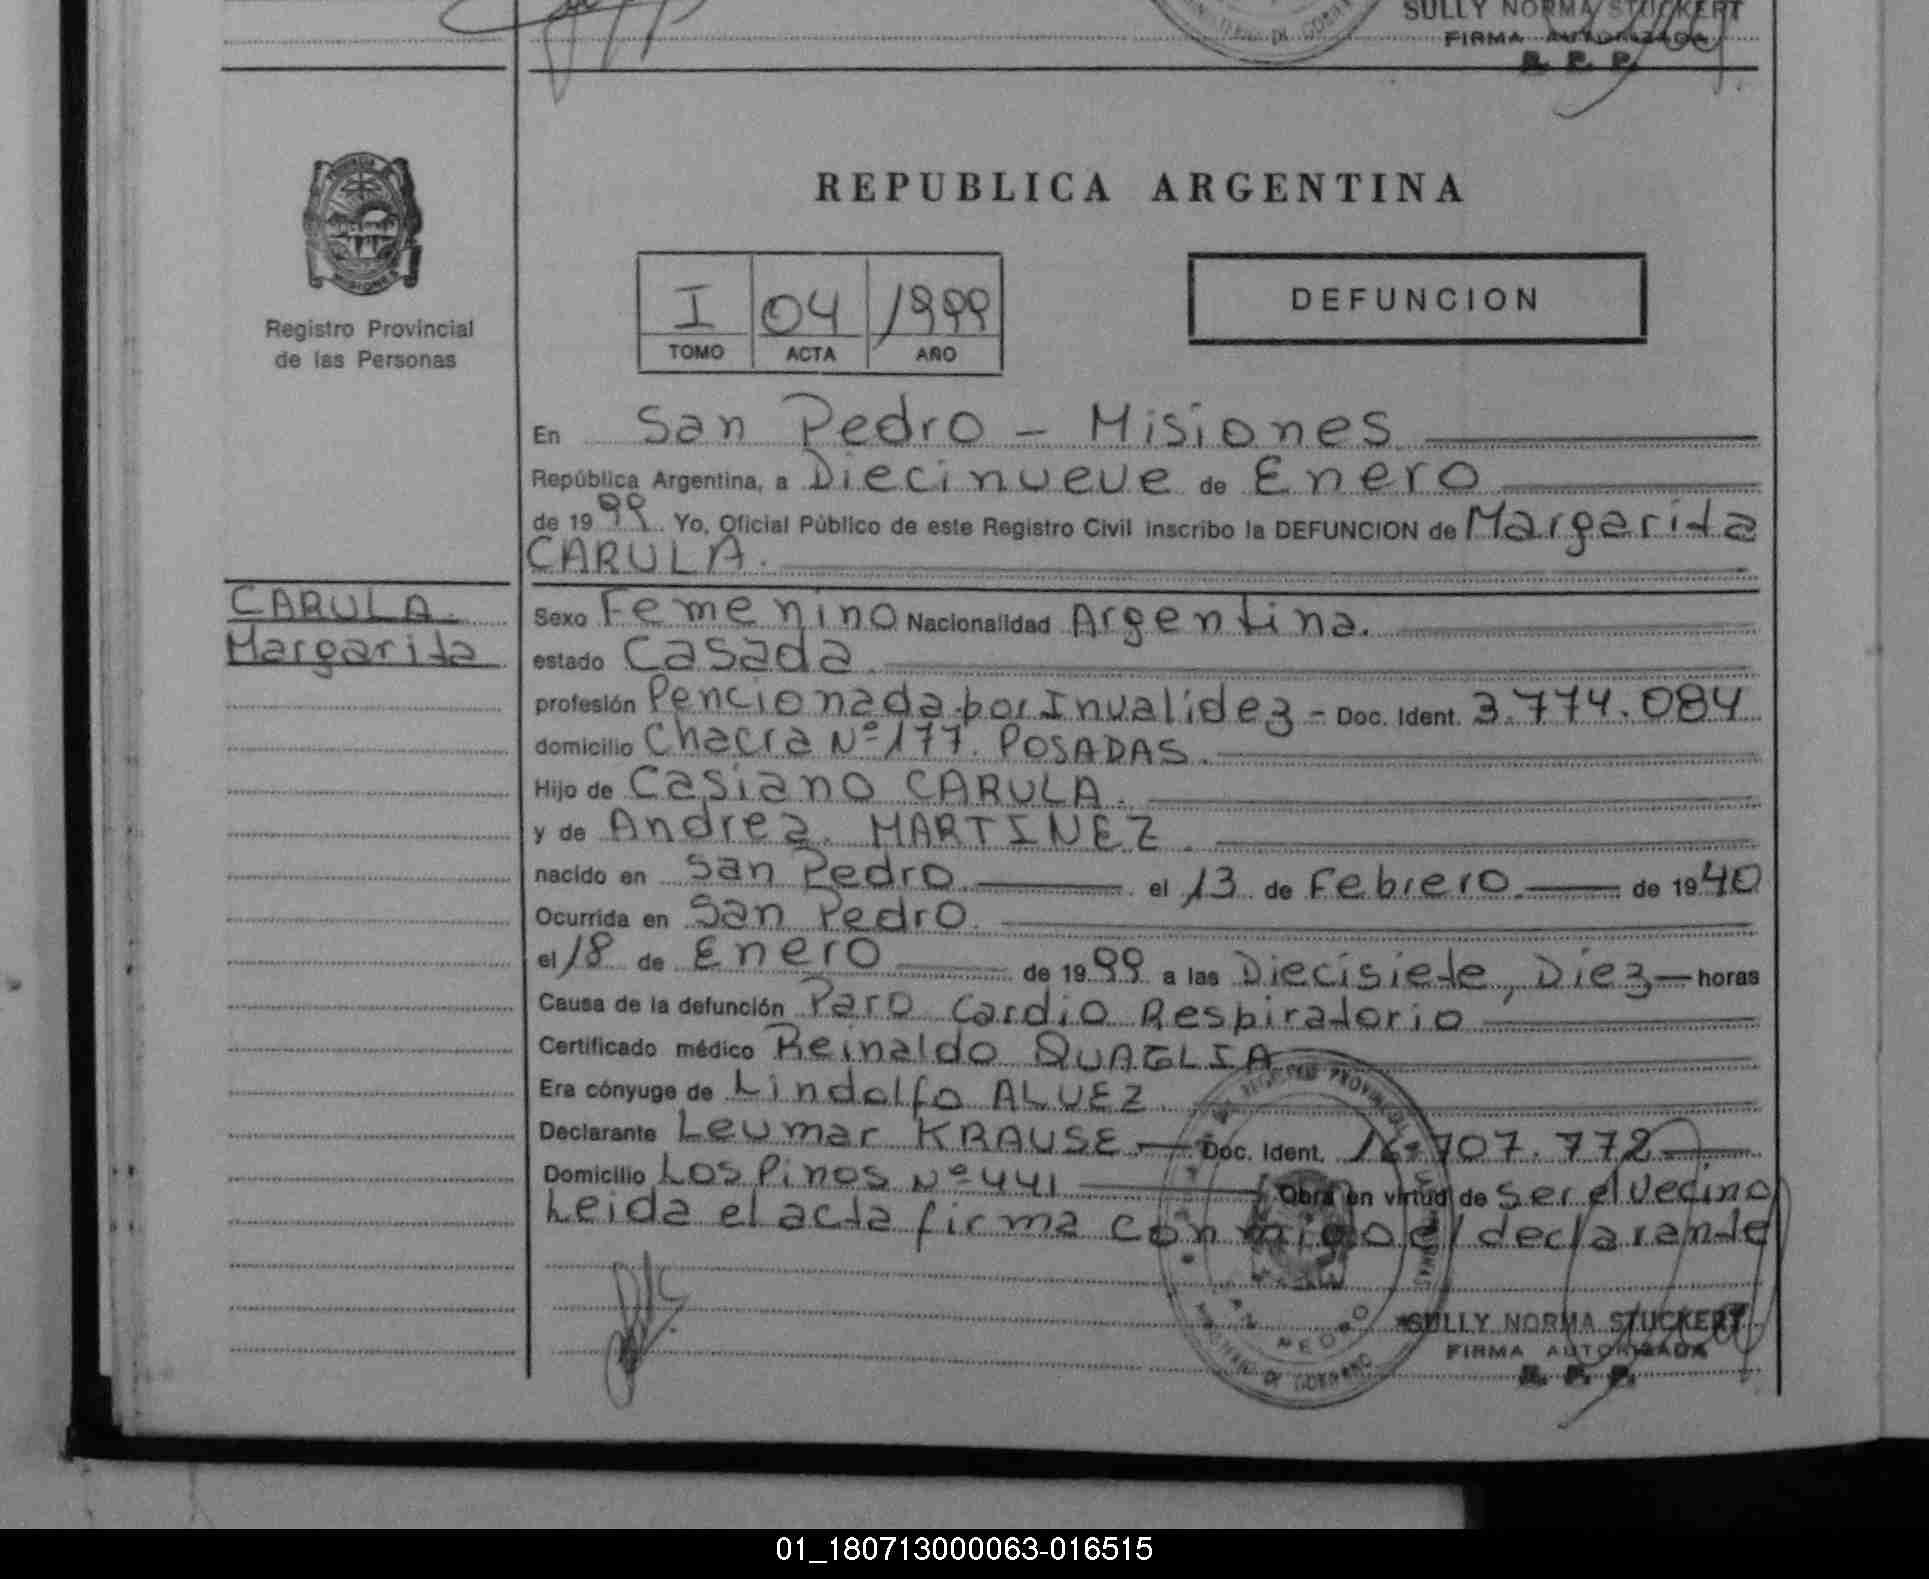 SULLY NORMA STUCKERT
FIRMA AUTORIZADA
R. P. P.
Registro Provincial
de las Personas
REPUBLICA ARGENTINA
I 04 1999
TOMO ACTA AÑO
DEFUNCION
En San Pedro - Misiones
República Argentina, a Diecinueve de Enero
de 1999 Yo, Oficial Público de este Registro Civil inscribo la DEFUNCION de Margarita
CARULA.
CARULA.
Margarita
Sexo Femenino Nacionalidad Argentina.
estado Casada.
profesión Pencionada por Invalidez - Doc. Ident. 3.774.084
domicilio Chacra Nº 177. POSADAS.
Hijo de Casiano CARULA.
y de Andrea. MARTINEZ.
nacido en San Pedro el 13 de Febrero. de 1940
Ocurrida en San Pedro.
el 18 de Enero de 1999 a las Diecisiete, Diez horas
Causa de la defunción Paro Cardio Respiratorio
Certificado médico Reinaldo QUAGLIA
Era cónyuge de Lindolfo ALVEZ.
Declarante Leumar KRAUSE. Doc. Ident. 707.772
Domicilio Los Pinos Nº 441 Obra en virtud de ser el vecino
Leida el acta firma con migo el declarante
SULLY NORMA STUCKERT
FIRMA AUTORIZADA
R. P. P.
01_180713000063-016515